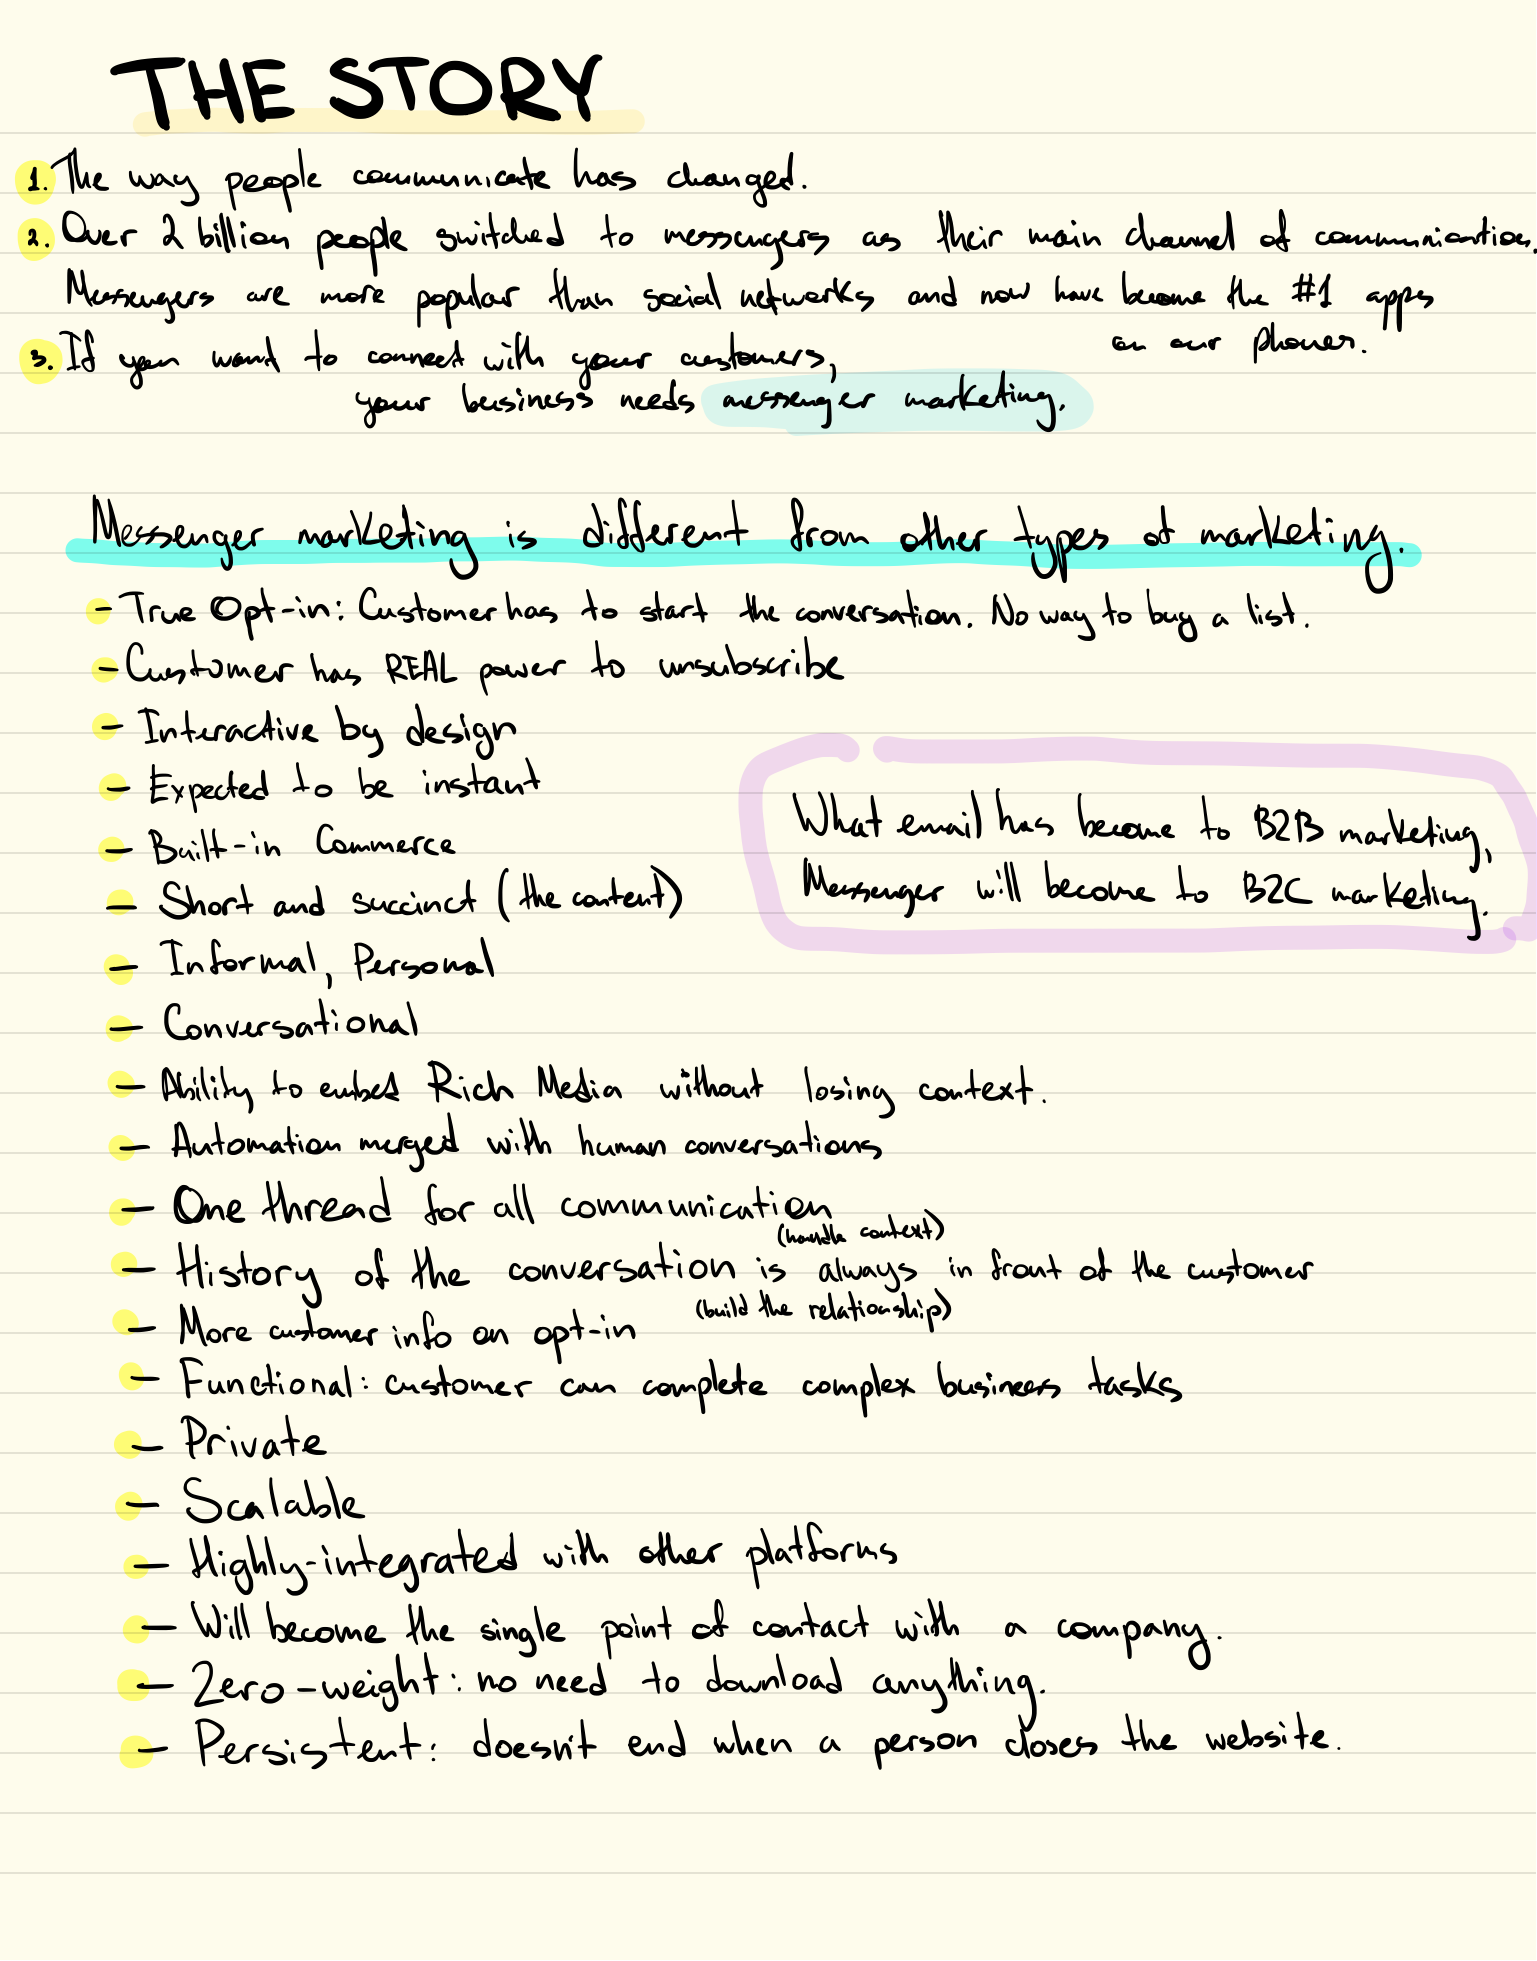 THE STORY
1. The way people communicate has changed.
2. Over 2 billion people switched to messengers as their main channel of communication.
Messengers are more popular than social networks and now have become the #1 apps
on our phones.
3. If you want to connect with your customers,
your business needs messenger marketing.
Messenger marketing is different from other types of marketing.
- True Opt-in: Customer has to start the conversation. No way to buy a list.
- Customer has REAL power to unsubscribe
- Interactive by design
- Expected to be instant
- Built-in Commerce
What email has become to B2B marketing,
Messenger will become to B2C marketing.
- Short and succinct (the content)
- Informal, Personal
- Conversational
- Ability to embed Rich Media without losing context.
- Automation merged with human conversations
- One thread for all communication
(handle context)
- History of the conversation is always in front of the customer
(build the relationship)
- More customer info on opt-in
- Functional: customer can complete complex business tasks
- Private
- Scalable
- Highly-integrated with other platforms
- Will become the single point of contact with a company.
- Zero-weight: no need to download anything.
- Persistent: doesn't end when a person closes the website.